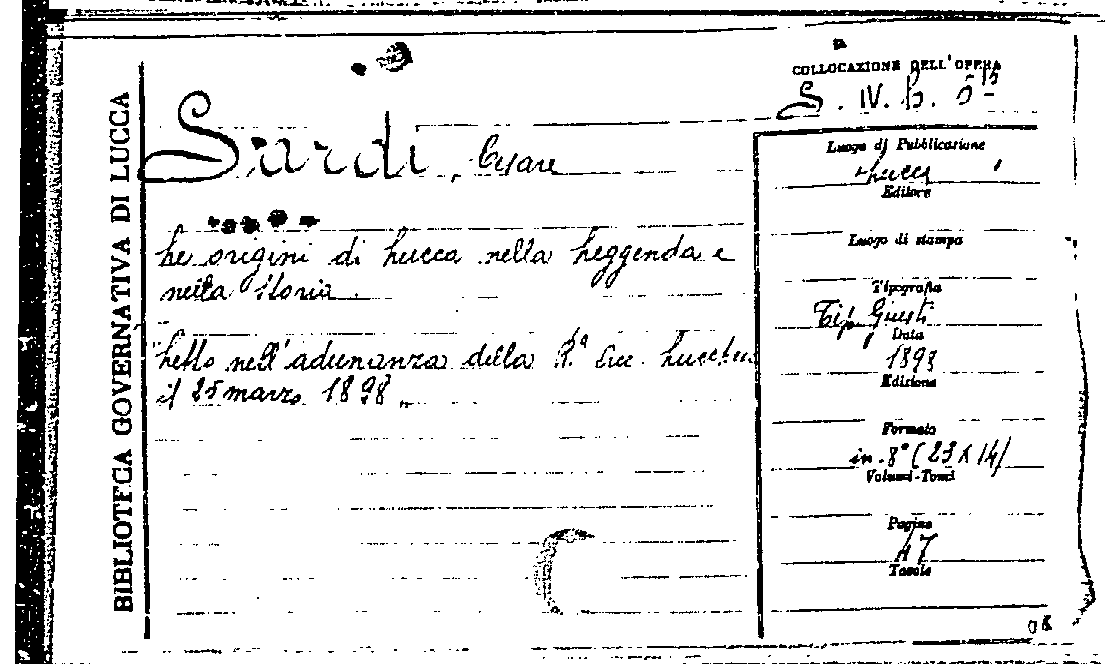 BIBLIOTECA GOVERNATIVA DI LUCCA
COLLOCAZIONE DELL'OPERA
S. IV. b.
Sardi, Cesare
Le origini di Lucca nella Leggenda e
nella Storia.
Letto nell'adunanza della R.a Acc. Lucchese
il 25 marzo 1898.
Luogo di Pubblicazione
Lucca
Editore
Luogo di stampa
Tipografia
Tip. Giusti
Data
1898
Edizione
Formato
in-8° (23 x 14)
Volumi-Tomi
Pagine
47
Tavole